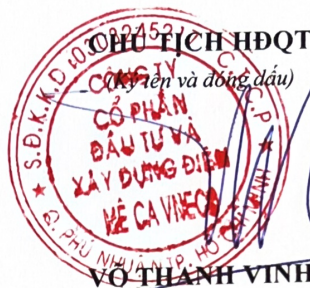 CHỦ TỊCH HĐQT
(Ký tên và đóng dấu)
S.Đ.K.K.D C.T.C.P
CÔNG TY
CỔ PHẦN
ĐẦU TƯ VÀ
XÂY DỰNG ĐIỆN
MÊ CA VINECO
Q. PHÚ NHUẬN T.P. HỒ CHÍ MINH
VÕ THANH VINH